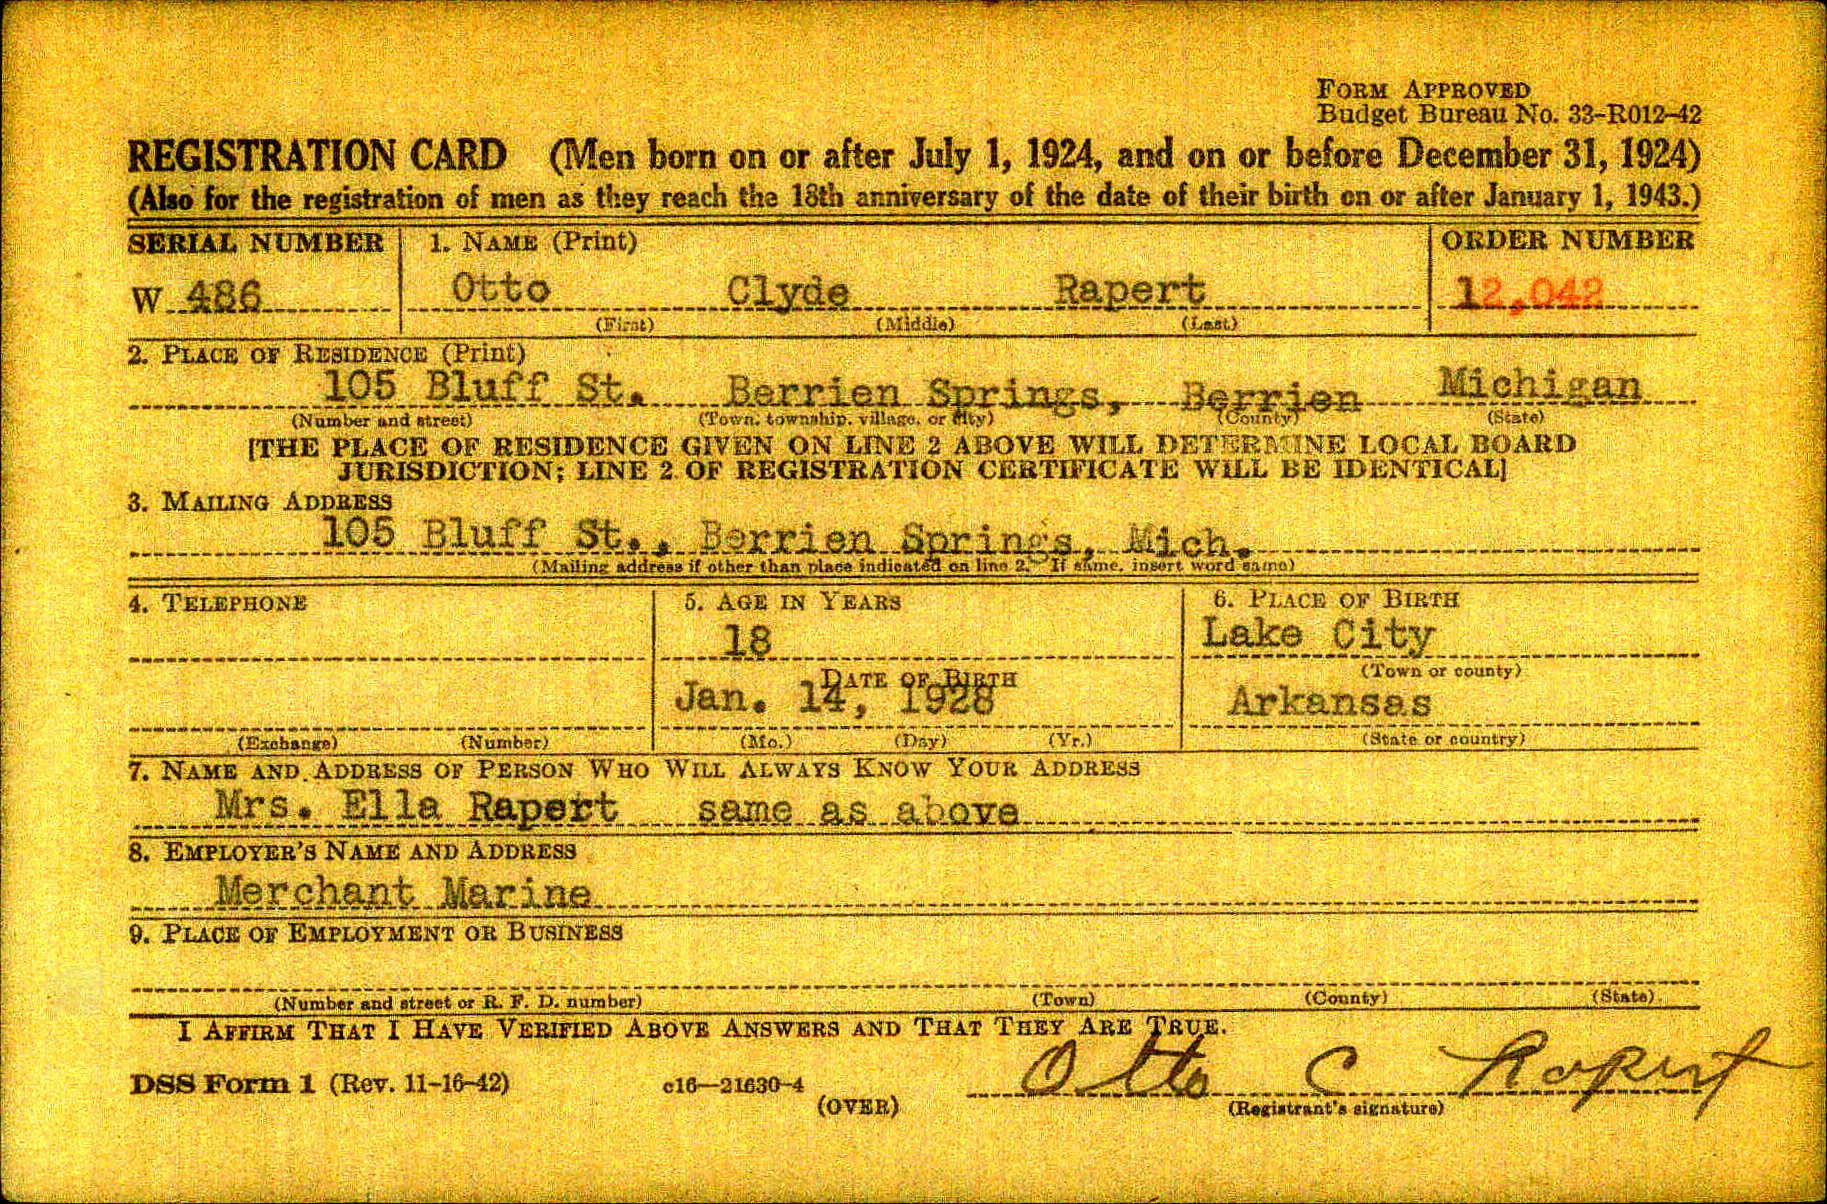 FORM APPROVED
Budget Bureau No. 33-R012-42
REGISTRATION CARD (Men born on or after July 1, 1924, and on or before December 31, 1924)
(Also for the registration of men as they reach the 18th anniversary of the date of their birth on or after January 1, 1943.)
SERIAL NUMBER 1. NAME (Print) ORDER NUMBER
W 486 Otto Clyde Rapert 12,042
(First) (Middle) (Last)
2. PLACE OF RESIDENCE (Print)
105 Bluff St. Berrien Springs, Berrien Michigan
(Number and street) (Town, township, village, or city) (County) (State)
[THE PLACE OF RESIDENCE GIVEN ON LINE 2 ABOVE WILL DETERMINE LOCAL BOARD
JURISDICTION; LINE 2 OF REGISTRATION CERTIFICATE WILL BE IDENTICAL]
3. MAILING ADDRESS
105 Bluff St., Berrien Springs, Mich.
(Mailing address if other than place indicated on line 2. If same, insert word same)
4. TELEPHONE 5. AGE IN YEARS 6. PLACE OF BIRTH
18 Lake City
DATE OF BIRTH (Town or county)
Jan. 14, 1928 Arkansas
(Exchange) (Number) (Mo.) (Day) (Yr.) (State or country)
7. NAME AND ADDRESS OF PERSON WHO WILL ALWAYS KNOW YOUR ADDRESS
Mrs. Ella Rapert same as above
8. EMPLOYER'S NAME AND ADDRESS
Merchant Marine
9. PLACE OF EMPLOYMENT OR BUSINESS
(Number and street or R. F. D. number) (Town) (County) (State)
I AFFIRM THAT I HAVE VERIFIED ABOVE ANSWERS AND THAT THEY ARE TRUE.
DSS Form 1 (Rev. 11-16-42) c16—21630-4 Otto C Rapert
(OVER) (Registrant's signature)